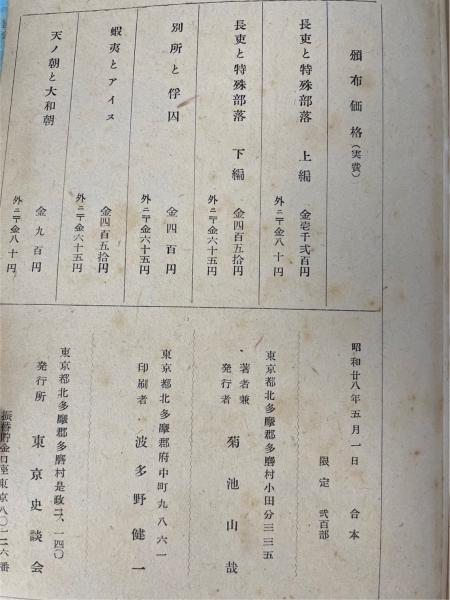 頒布価格(実費)
長吏と特殊部落 上編 金壱千弐百円
外ニ〒金八十円
長吏と特殊部落 下編 金四百五拾円
外ニ〒金六十五円
別所と俘囚 金四百円
外ニ〒金六十五円
蝦夷とアイヌ 金四百五拾円
外ニ〒金六十五円
天ノ朝と大和朝 金九百円
外ニ〒金八十円
昭和廿八年五月一日 合本
限定 弐百部
東京都北多摩郡多磨村小田分三三五
著者兼
発行者 菊池山哉
東京都北多摩郡府中町九八六一
印刷者 波多野健一
東京都北多摩郡多磨村是政二、一四〇
発行所 東京史談会
振替貯金口座東京八〇二二六番